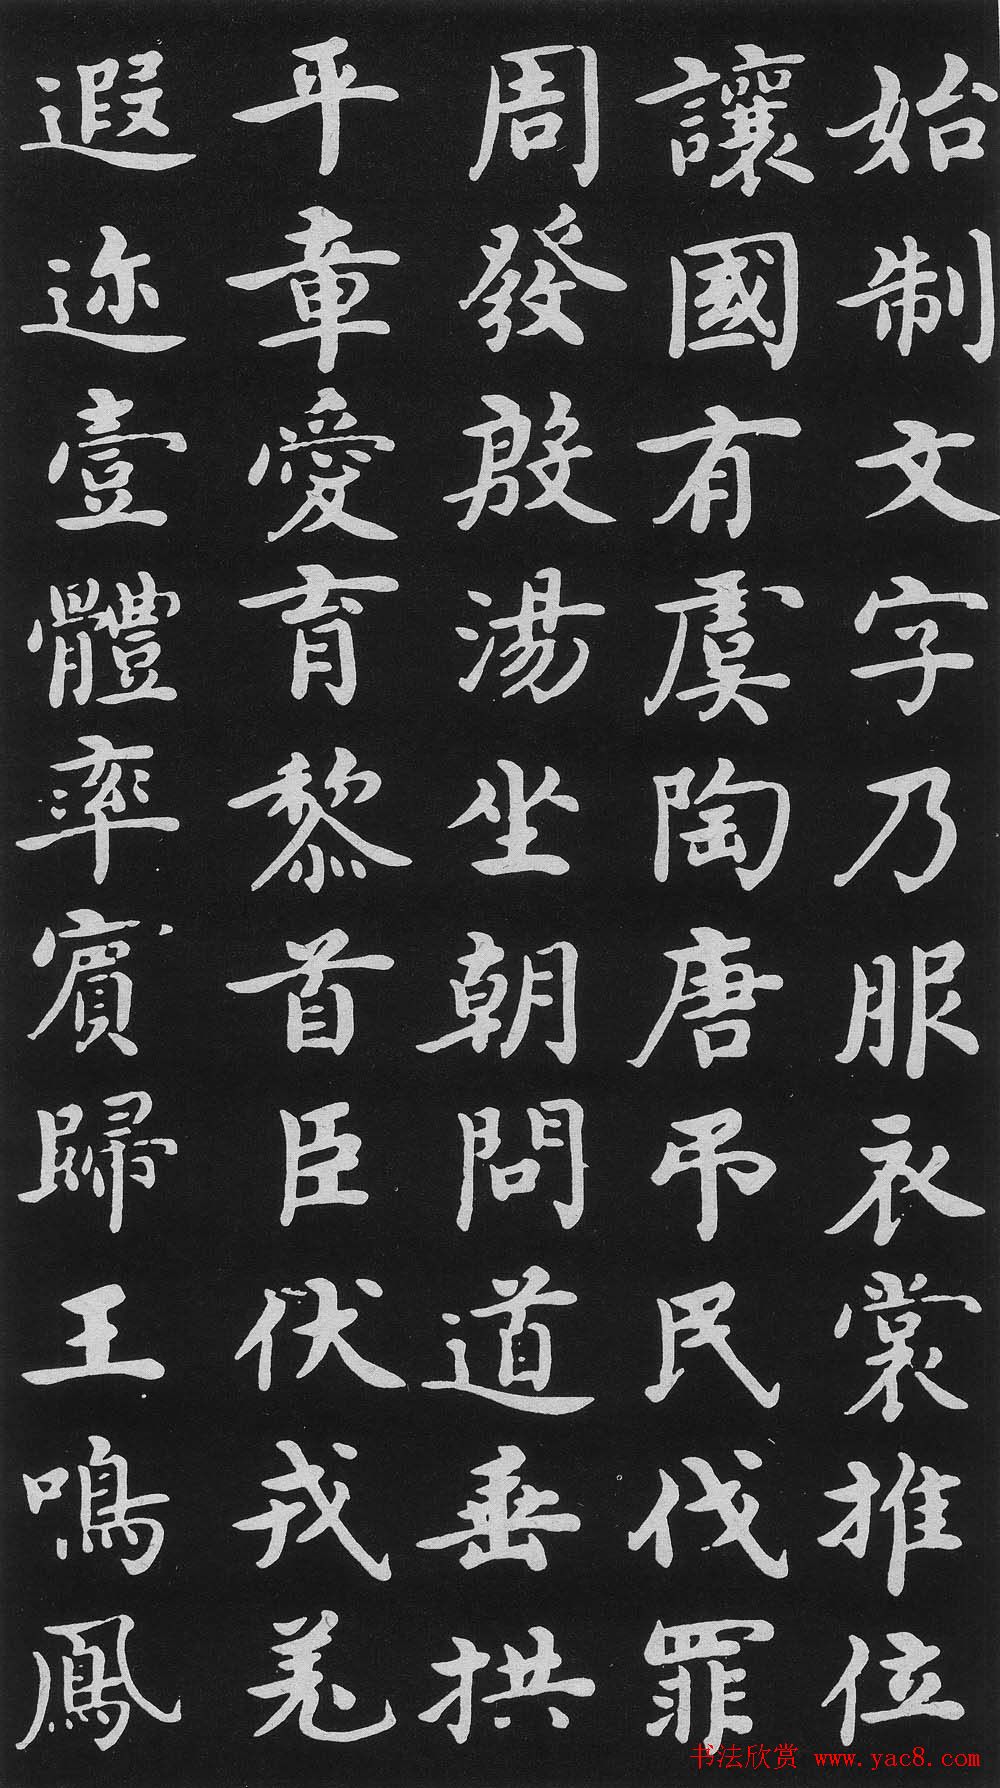 始制文字乃服衣裳推位
讓國有虞陶唐吊民伐罪
周發殷湯坐朝問道垂拱
平章愛育黎首臣伏戎羌
遐迩壹體率賓歸王鳴鳳
书法欣赏 www.yac8.com